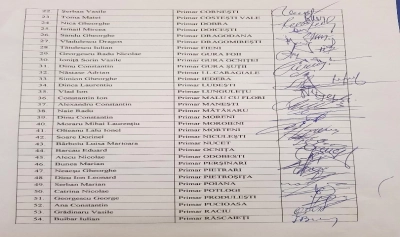 22 Șerban Vasile Primar CORNEȘTI
23 Toma Matei Primar COSTEȘTI VALE
24 Nica Gheorghe Primar DOBRA
25 Ismail Mircea Primar DOICEȘTI
26 Sandu Gheorghe Primar DRAGODANA
27 Vlădulescu Dragoș Primar DRAGOMIREȘTI
28 Tănăsescu Ion Primar FIENI
29 Georgescu Radu Nicolae Primar GURA FOII
30 Ioniță Sorin Vasile Primar GURA OCNIȚEI
31 Dinu Constantin Primar GURA ȘUȚII
32 Năstase Adrian Primar I.L CARAGIALE
33 Simion Gheorghe Primar IEDERA
34 Dincă Laurențiu Primar LUDEȘTI
35 Vlad Ion Primar LUNGULEȚU
36 Constantin Ion Primar MALU CU FLORI
37 Alexandru Constantin Primar MĂNEȘTI
38 Nan Radu Primar MĂTĂSARU
39 Dinu Constantin Primar MORENI
40 Moraru Mihai Laurențiu Primar MOROENI
41 Olteanu Lalu Ionel Primar MORTENI
42 Soare Dorinel Primar NICULEȘTI
43 Bărboiu Luisa Marioara Primar NUCET
44 Barsan Eduard Primar OCNIȚA
45 Alecu Nicolae Primar ODOBEȘTI
46 Bunea Marian Primar PERȘINARI
47 Neacșu Gheorghe Primar PIETRARI
48 Dinu Ion Leonard Primar PIETROȘIȚA
49 Șerban Marian Primar POIANA
50 Catrina Nicolae Primar POTLOGI
51 Georgescu George Primar PRODULEȘTI
52 Ana Constantin Primar PUCIOASA
53 Grădinaru Vasile Primar RACIU
54 Bulhar Iulian Primar RĂSCAIEȚI